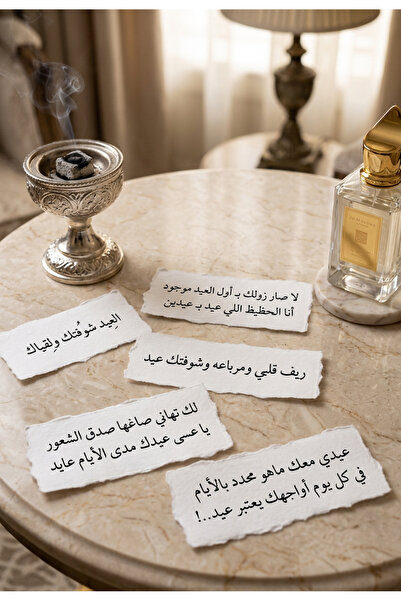 لا صار زولك بـ أول العيد موجود
أنا الحظيظ اللي عيد بـ عيدين
العِيد شوفتك ولِقياك
ريف قلبي ومرباعه وشوفتك عيد
لك تهاني صاغها صدق الشعور
يا عسى عيدك مدى الأيام عايد
عيدي معك ماهو محدد بالأيام
في كل يوم أواجهك يعتبر عيد..!